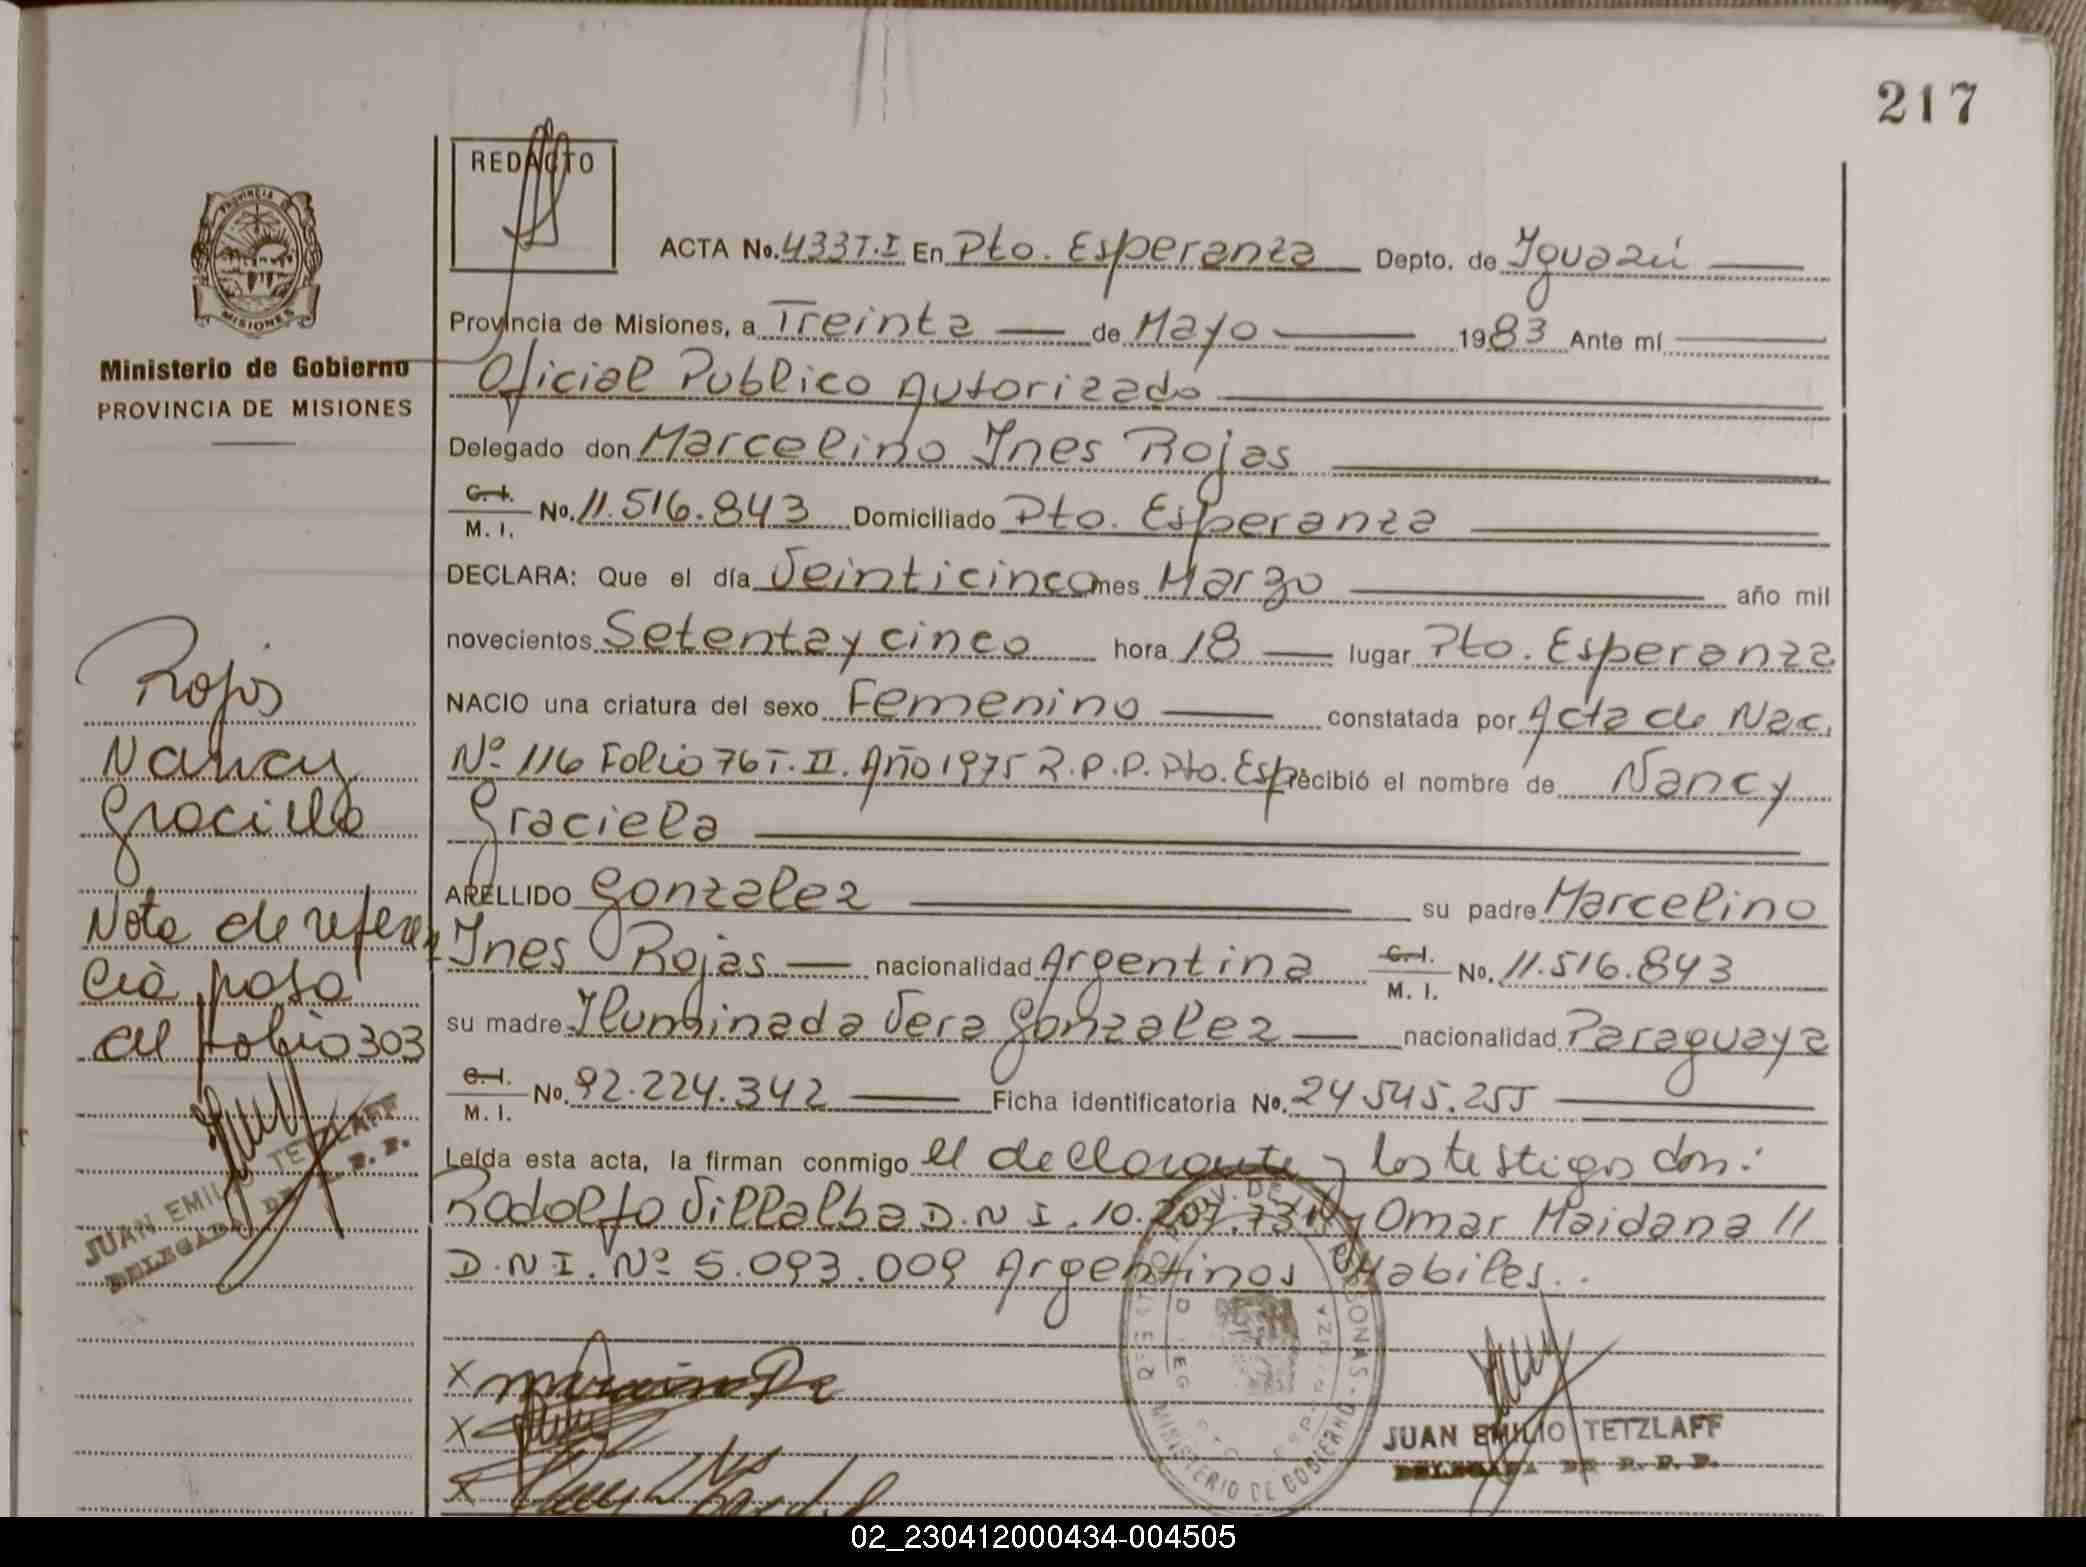 217
REDACTO
PROVINCIA DE
MISIONES
Ministerio de Gobierno
PROVINCIA DE MISIONES
ACTA No. 433T.I En Pto. Esperanza Depto. de Iguazú
Provincia de Misiones, a Treinta de Mayo 1983 Ante mí
Oficial Publico Autorizado
Delegado don Marcelino Ines Rojas
C. I. M. I. No. 11.516.843 Domiciliado Pto. Esperanza
DECLARA: Que el día Veinticinco mes Marzo año mil
novecientos Setenta y cinco hora 18 lugar Pto. Esperanza
NACIO una criatura del sexo Femenino constatada por Acta de Nac.
Nº 116 Folio 76 T. II. Año 1975 R.P.P. Pto. Esp. recibió el nombre de Nancy
Graciela
ARELLIDO Gonzalez su padre Marcelino
Ines Rojas nacionalidad Argentina C. I. M. I. No. 11.516.843
su madre Iluminada Vera Gonzalez nacionalidad Paraguaya
C. I. M. I. No. 92.224.342 Ficha identificatoria No. 24.545.255
Leída esta acta, la firman conmigo el declarante y los testigos don:
Rodolfo Villalba D.N.I. 10. y Omar Maidana
D.N.I. Nº 5.093.009 Argentinos Habiles..
Rojas
Nancy
Graciela
Nota de referen
cia pasa
al folio 303
JUAN EMILIO TETZLAFF
DELEGADO DE R. P. P.
X
X
X
MINISTERIO DE GOBIERNO
JUAN EMILIO TETZLAFF
DELEGADA DE R. P. P.
02_230412000434-004505